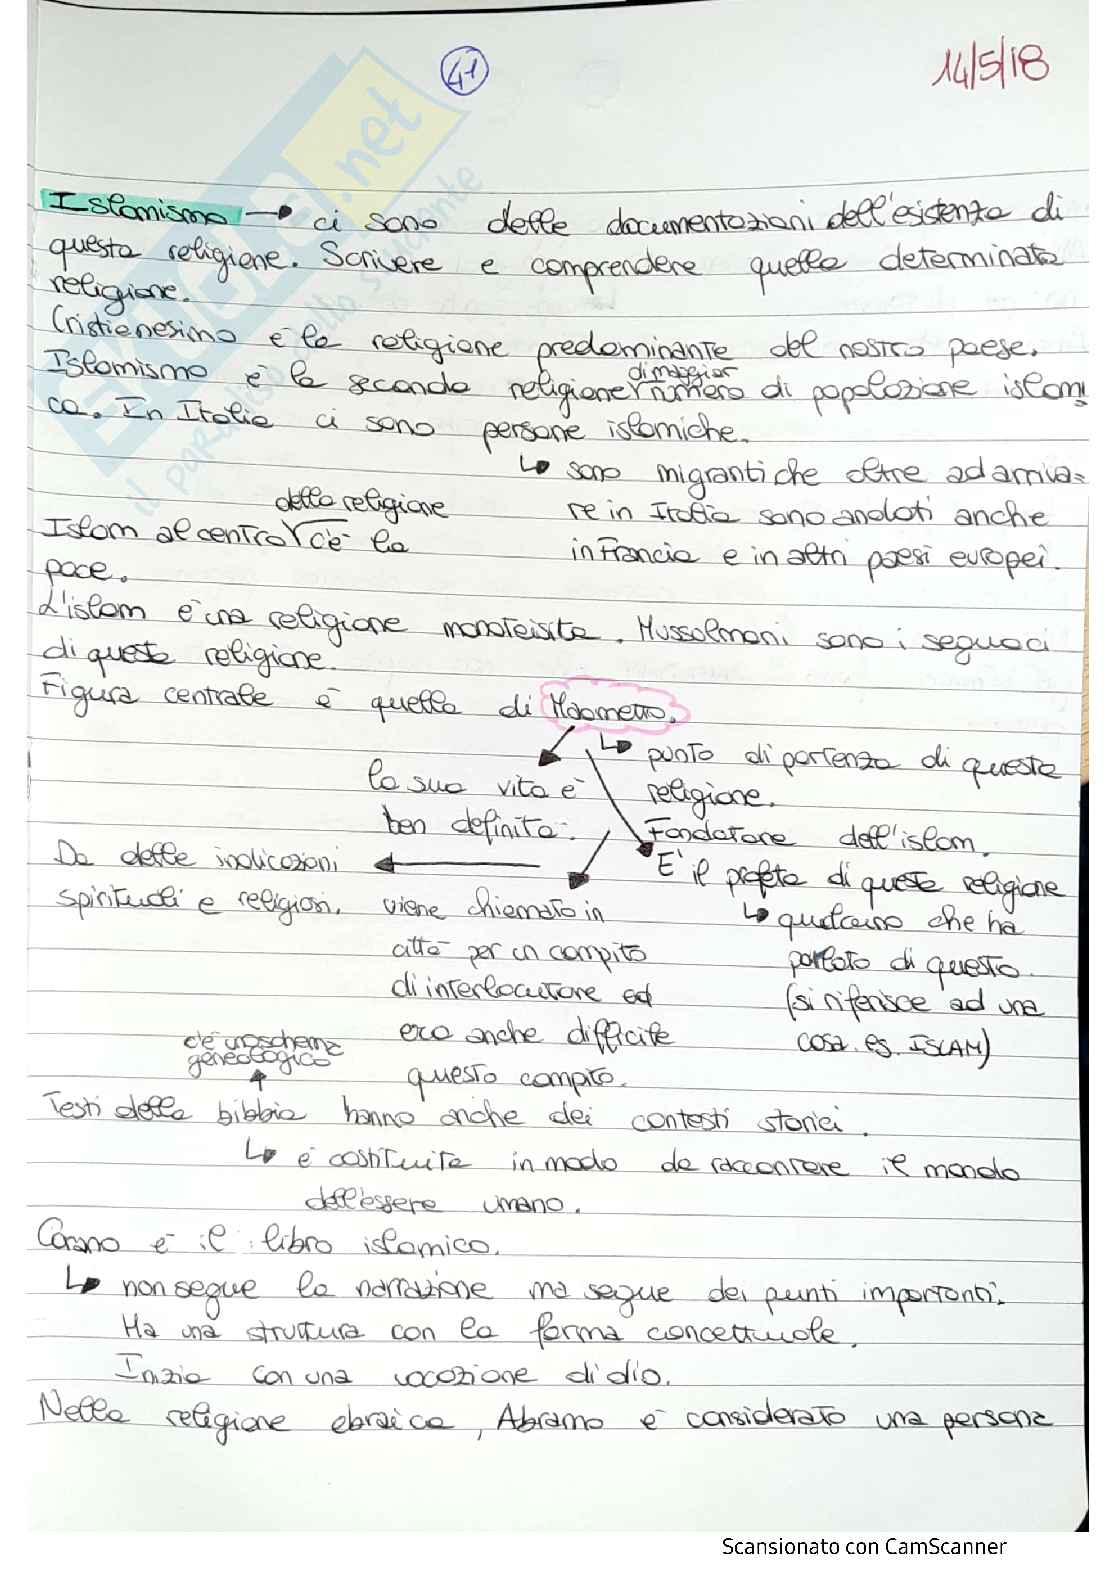 41
14/5/18
Islamismo → ci sono delle documentazioni dell'esistenza di
questa religione. Scrivere e comprendere quella determinata
religione.
Cristienesimo è la religione predominante del nostro paese.
Islamismo è la seconda religione di maggior numero di popolazione islami
ca. In Italia ci sono persone islamiche.
↳ sono migranti che oltre ad arriva=
re in Italia sono andati anche
in Francia e in altri paesi europei.
Islam al centro della religione c'è la
pace.
L'islam è una religione monoteista. Mussolmani sono i seguaci
di questa religione.
Figura centrale è quella di Maometto.
↳ punto di partenza di questa
religione.
Fondatore dell'islam.
È il profeta di questa religione
↳ qualcuno che ha
parlato di questo
(si riferisce ad una
cosa. es. ISLAM)
la sua vita è
ben definita.
viene chiamato in
città per un compito
di interlocutore ed
era anche difficile
questo compito.
Da delle indicazioni
spirituali e religiosi.
c'è uno schema
geneologico
Testi della bibbia hanno anche dei contesti storici.
↳ è costituita in modo da raccontare il mondo
dell'essere umano.
Corano è il libro islamico.
↳ non segue la narrazione ma segue dei punti importanti.
Ha una struttura con la forma concettuale.
Inizia con una vocazione di dio.
Nella religione ebraica, Abramo è considerato una persona
.net
il paradiso dello studente
Scansionato con CamScanner